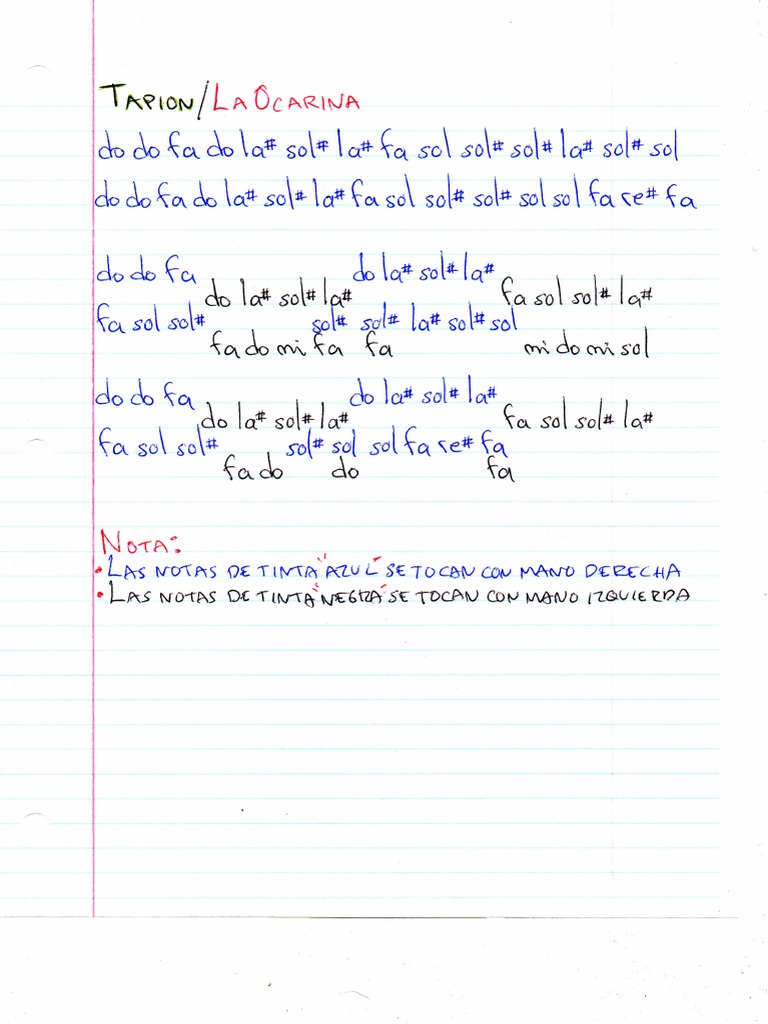 TAPION/LA OCARINA
do do fa do la# sol# la# fa sol sol# sol# la# sol# sol
do do fa do la# sol# la# fa sol sol# sol# sol sol fa re# fa
do do fa do la# sol# la#
do la# sol# la# fa sol sol# la#
fa sol sol# sol# sol# la# sol# sol
fa do mi fa fa mi do mi sol
do do fa do la# sol# la#
do la# sol# la# fa sol sol# la#
fa sol sol# sol# sol sol fa re# fa
fa do do fa
NOTA:
• LAS NOTAS DE TINTA "AZUL" SE TOCAN CON MANO DERECHA
• LAS NOTAS DE TINTA "NEGRA" SE TOCAN CON MANO IZQUIERDA